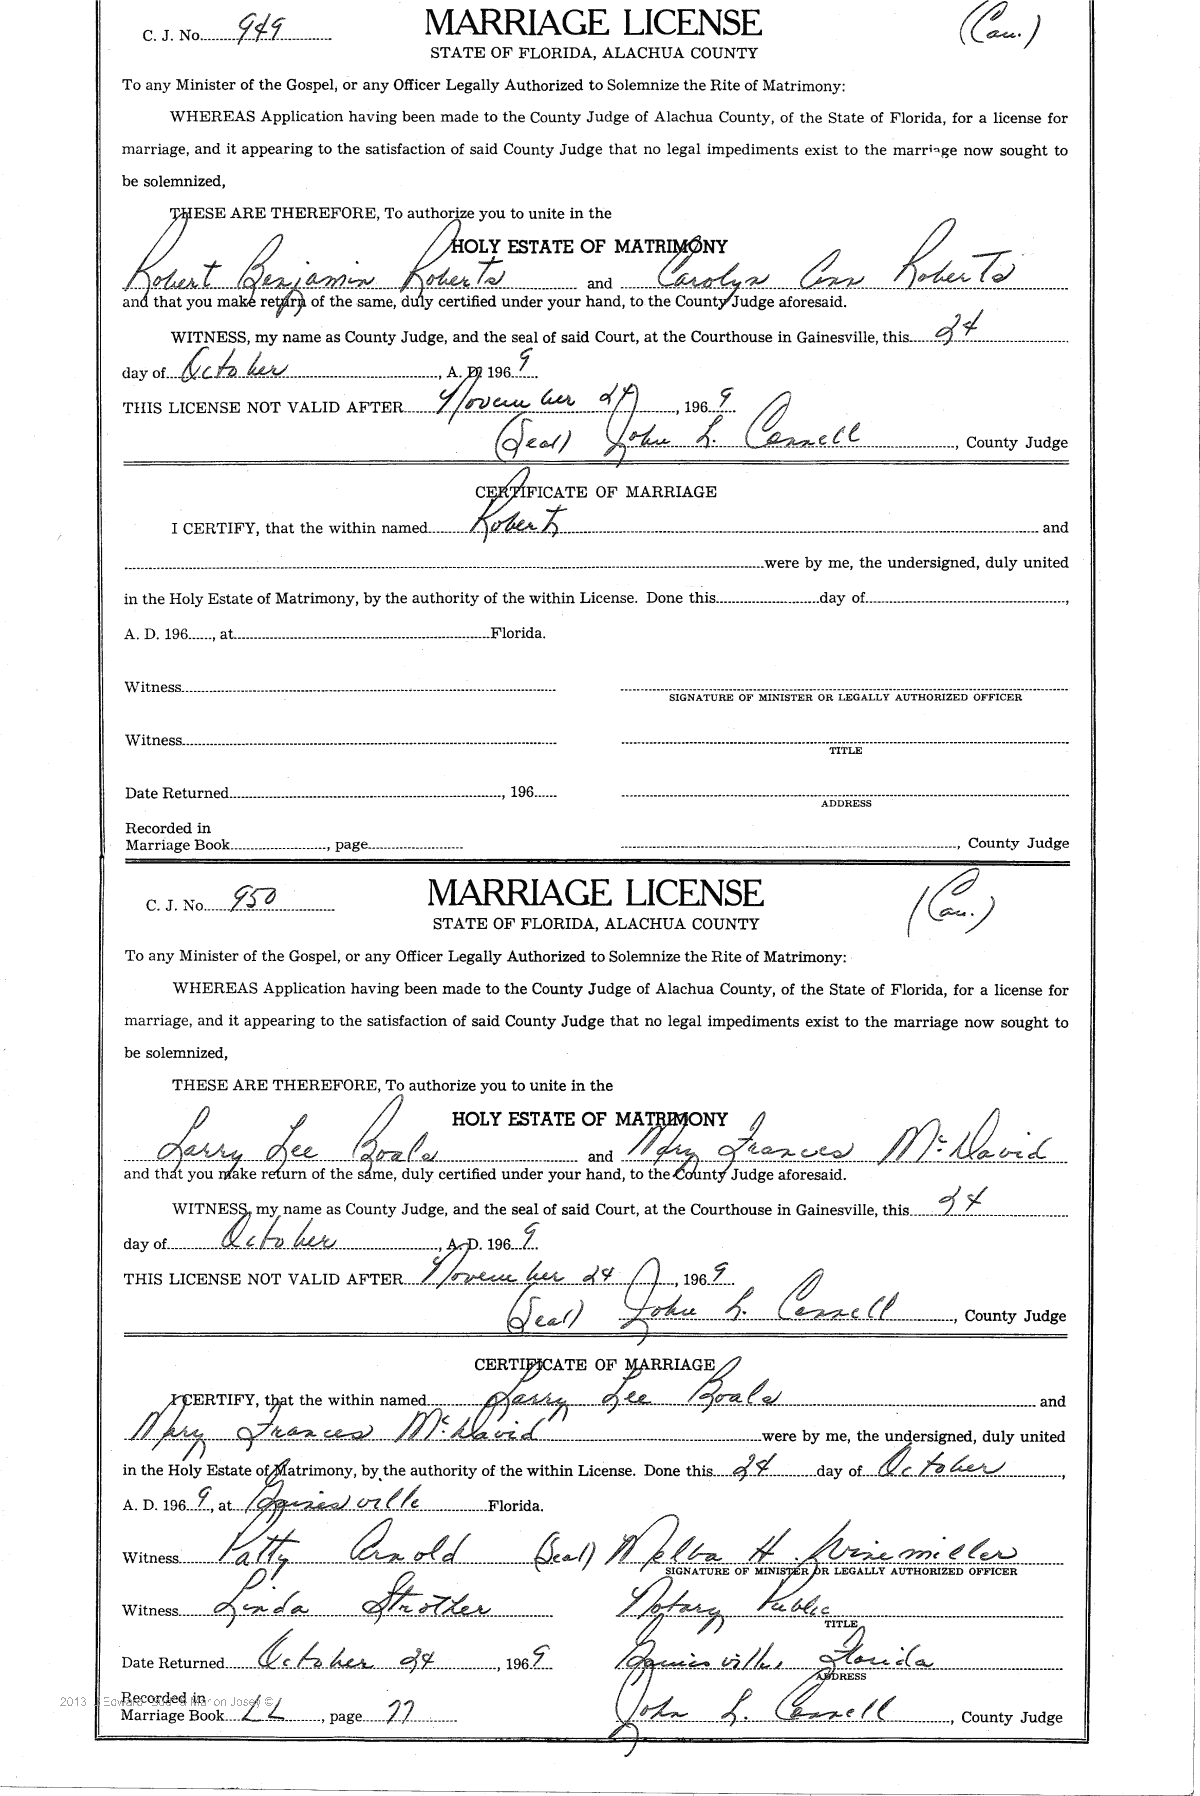 C. J. No. 949 MARRIAGE LICENSE (Cau.)
STATE OF FLORIDA, ALACHUA COUNTY
To any Minister of the Gospel, or any Officer Legally Authorized to Solemnize the Rite of Matrimony:
WHEREAS Application having been made to the County Judge of Alachua County, of the State of Florida, for a license for
marriage, and it appearing to the satisfaction of said County Judge that no legal impediments exist to the marriage now sought to
be solemnized,
THESE ARE THEREFORE, To authorize you to unite in the
HOLY ESTATE OF MATRIMONY
Robert Benjamin Roberts and Carolyn Ann Roberts
and that you make return of the same, duly certified under your hand, to the County Judge aforesaid.
WITNESS, my name as County Judge, and the seal of said Court, at the Courthouse in Gainesville, this 24
day of October, A. D. 1969
THIS LICENSE NOT VALID AFTER November 24, 1969
(Seal) John L. Connell, County Judge
CERTIFICATE OF MARRIAGE
I CERTIFY, that the within named Robert and
were by me, the undersigned, duly united
in the Holy Estate of Matrimony, by the authority of the within License. Done this day of ,
A. D. 196 , at Florida.
Witness
SIGNATURE OF MINISTER OR LEGALLY AUTHORIZED OFFICER
Witness
TITLE
Date Returned , 196
ADDRESS
Recorded in
Marriage Book , page , County Judge
C. J. No. 950 MARRIAGE LICENSE (Cau.)
STATE OF FLORIDA, ALACHUA COUNTY
To any Minister of the Gospel, or any Officer Legally Authorized to Solemnize the Rite of Matrimony:
WHEREAS Application having been made to the County Judge of Alachua County, of the State of Florida, for a license for
marriage, and it appearing to the satisfaction of said County Judge that no legal impediments exist to the marriage now sought to
be solemnized,
THESE ARE THEREFORE, To authorize you to unite in the
HOLY ESTATE OF MATRIMONY
Larry Lee Boals and Mary Frances McDavid
and that you make return of the same, duly certified under your hand, to the County Judge aforesaid.
WITNESS, my name as County Judge, and the seal of said Court, at the Courthouse in Gainesville, this 24
day of October, A. D. 1969
THIS LICENSE NOT VALID AFTER November 24, 1969
(Seal) John L. Connell, County Judge
CERTIFICATE OF MARRIAGE
I CERTIFY, that the within named Larry Lee Boals and
Mary Frances McDavid were by me, the undersigned, duly united
in the Holy Estate of Matrimony, by the authority of the within License. Done this 24 day of October,
A. D. 1969, at Gainesville Florida.
Witness Patty Arnold (Seal) Melba H. Winemiller
SIGNATURE OF MINISTER OR LEGALLY AUTHORIZED OFFICER
Witness Linda Strother Notary Public
TITLE
Date Returned October 24, 1969 Gainesville, Florida
ADDRESS
Recorded in
Marriage Book LL, page 77 John L. Connell, County Judge